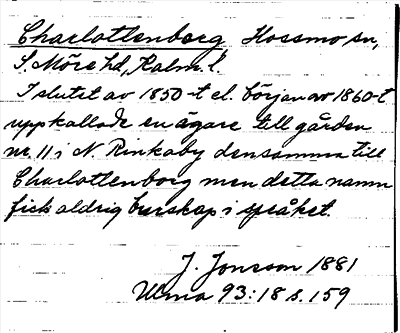 Charlottenborg Hossmo sn,
S. Möre hd, Kalm. l.
I slutet av 1850-t el. början av 1860-t
uppkallade en ägare till gården
nr. 11 i N. Rinkaby densamma till
Charlottenborg men detta namn
fick aldrig burskap i språket.
J. Jonsson 1881
Ulma 93:18 s. 159